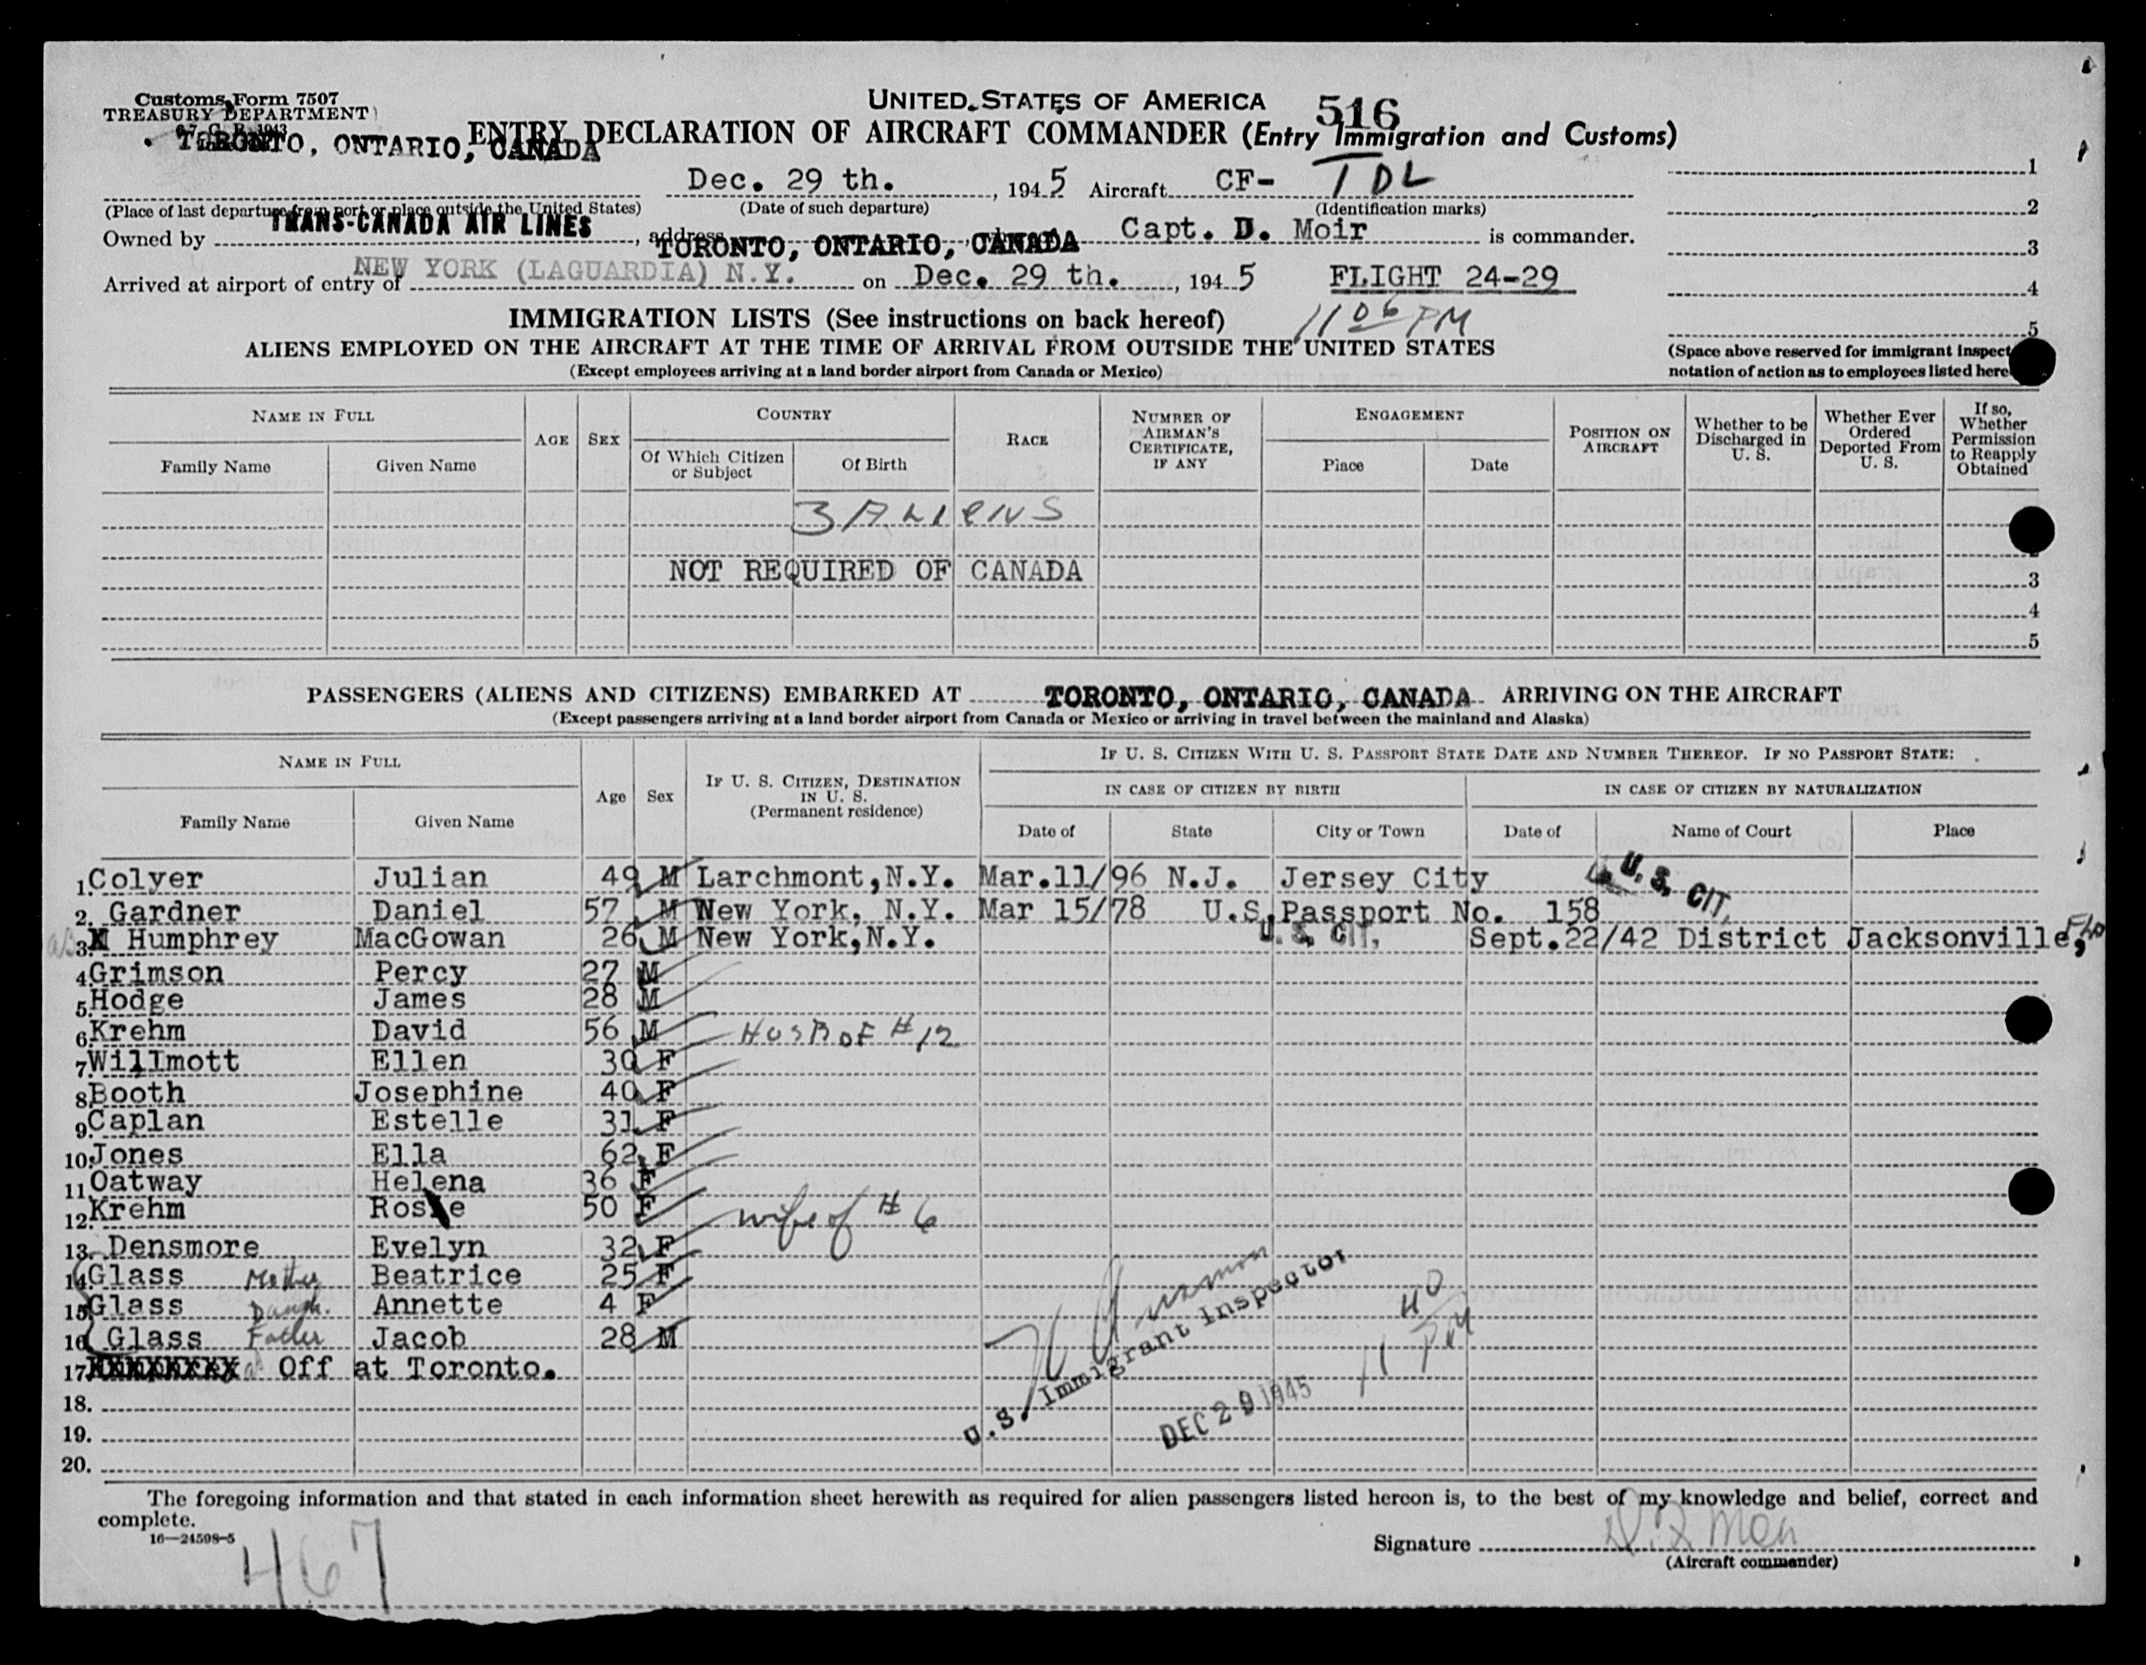 Customs Form 7507
TREASURY DEPARTMENT
UNITED STATES OF AMERICA
516
ENTRY DECLARATION OF AIRCRAFT COMMANDER (Entry Immigration and Customs)
TORONTO, ONTARIO, CANADA
Dec. 29 th., 1945 Aircraft CF- TDL
(Place of last departure from port or place outside the United States) (Date of such departure) (Identification marks)
Owned by TRANS-CANADA AIR LINES, address TORONTO, ONTARIO, CANADA Capt. D. Moir is commander.
Arrived at airport of entry of NEW YORK (LAGUARDIA) N.Y. on Dec. 29 th., 1945 FLIGHT 24-29
1
2
3
4
5
IMMIGRATION LISTS (See instructions on back hereof) 11 06 PM
ALIENS EMPLOYED ON THE AIRCRAFT AT THE TIME OF ARRIVAL FROM OUTSIDE THE UNITED STATES
(Except employees arriving at a land border airport from Canada or Mexico)
(Space above reserved for immigrant inspect
notation of action as to employees listed here
NAME IN FULL
Family Name
Given Name
AGE
SEX
COUNTRY
Of Which Citizen or Subject
Of Birth
RACE
NUMBER OF AIRMAN'S CERTIFICATE, IF ANY
ENGAGEMENT
Place
Date
POSITION ON AIRCRAFT
Whether to be Discharged in U. S.
Whether Ever Ordered Deported From U. S.
If so, Whether Permission to Reapply Obtained
3 ALIENS
NOT REQUIRED OF CANADA
3
4
5
PASSENGERS (ALIENS AND CITIZENS) EMBARKED AT TORONTO, ONTARIO, CANADA ARRIVING ON THE AIRCRAFT
(Except passengers arriving at a land border airport from Canada or Mexico or arriving in travel between the mainland and Alaska)
NAME IN FULL
Family Name
Given Name
Age
Sex
IF U. S. CITIZEN, DESTINATION IN U. S.
(Permanent residence)
IF U. S. CITIZEN WITH U. S. PASSPORT STATE DATE AND NUMBER THEREOF. IF NO PASSPORT STATE:
IN CASE OF CITIZEN BY BIRTH
IN CASE OF CITIZEN BY NATURALIZATION
Date of
State
City or Town
Date of
Name of Court
Place
1. Colyer Julian 49 M Larchmont, N.Y. Mar.11/96 N.J. Jersey City U. S. CIT.
2. Gardner Daniel 57 M New York, N.Y. Mar 15/78 U.S. Passport No. 158
3. Humphrey MacGowan 26 M New York, N.Y. U. S. CIT. Sept.22/42 District Jacksonville, Fla
4. Grimson Percy 27 M
5. Hodge James 28 M
6. Krehm David 56 M HUSB OF # 12
7. Willmott Ellen 30 F
8. Booth Josephine 40 F
9. Caplan Estelle 31 F
10. Jones Ella 62 F
11. Oatway Helena 36 F
12. Krehm Rose 50 F wife of # 6
13. Densmore Evelyn 32 F
14. Glass Mother Beatrice 25 F
15. Glass Daugh. Annette 4 F
16. Glass Father Jacob 28 M
17. XXXXXXXX Off at Toronto.
18.
19.
20.
U.S. Immigrant Inspector
11 40 PM
DEC 29 1945
The foregoing information and that stated in each information sheet herewith as required for alien passengers listed hereon is, to the best of my knowledge and belief, correct and
complete.
16—24598-5
467
Signature
(Aircraft commander)